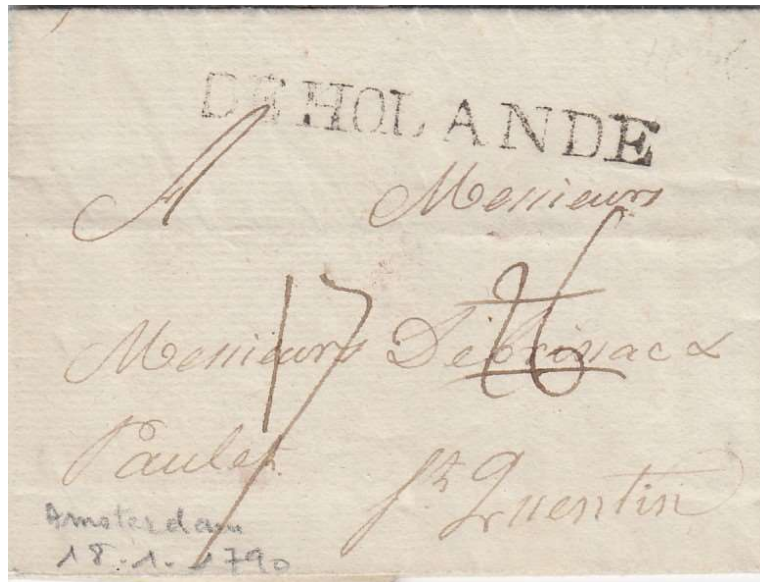 DE HOLANDE
A Messieurs
17 26
Messieurs Débrissac &
Paulet
St Quentin
Amsterdam
18.1.1790